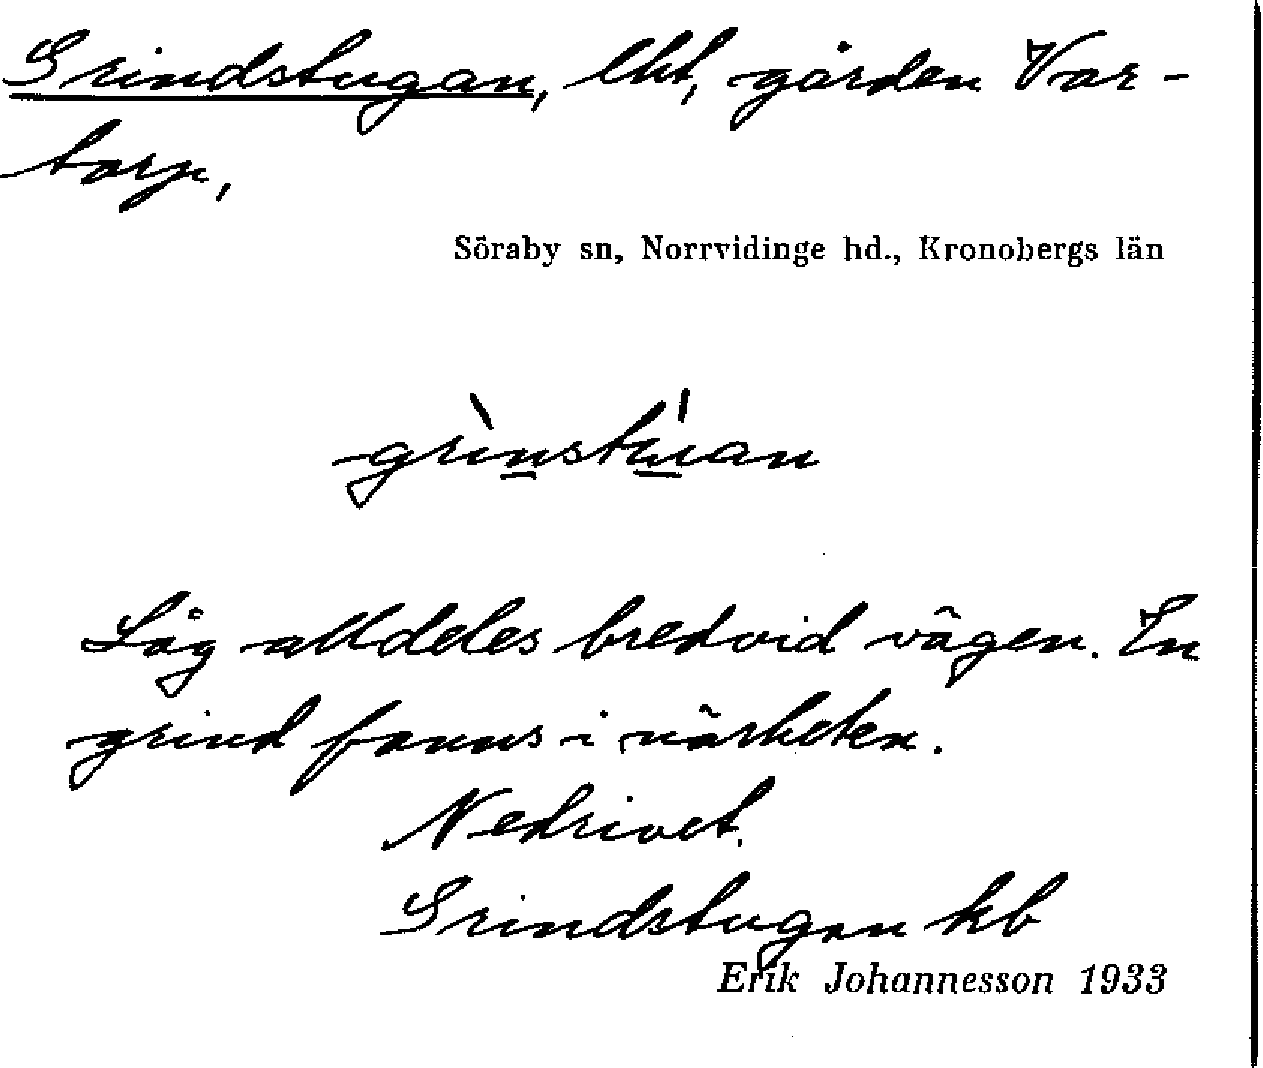 Grindstugan, lht, gården Var-
torp,
Söraby sn, Norrvidinge hd., Kronobergs län
grìnstúan
Låg alldeles bredvid vägen. En
grind fanns i närheten.
Nedrivet.
Grindstugan kb
Erik Johannesson 1933